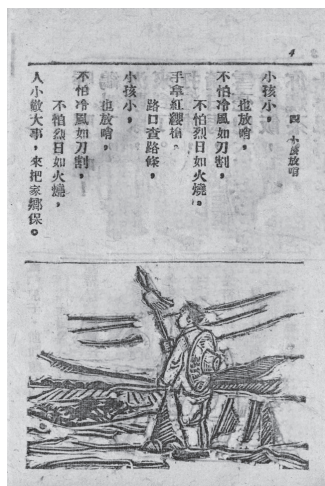 4
四 小孩放哨
小孩小,
也放哨,
不怕冷風如刀割,
不怕烈日如火燒。
手拿紅纓槍,
路口查路條,
小孩小,
也放哨,
不怕冷風如刀割,
不怕烈日如火燒,
人小做大事,來把家鄉保。